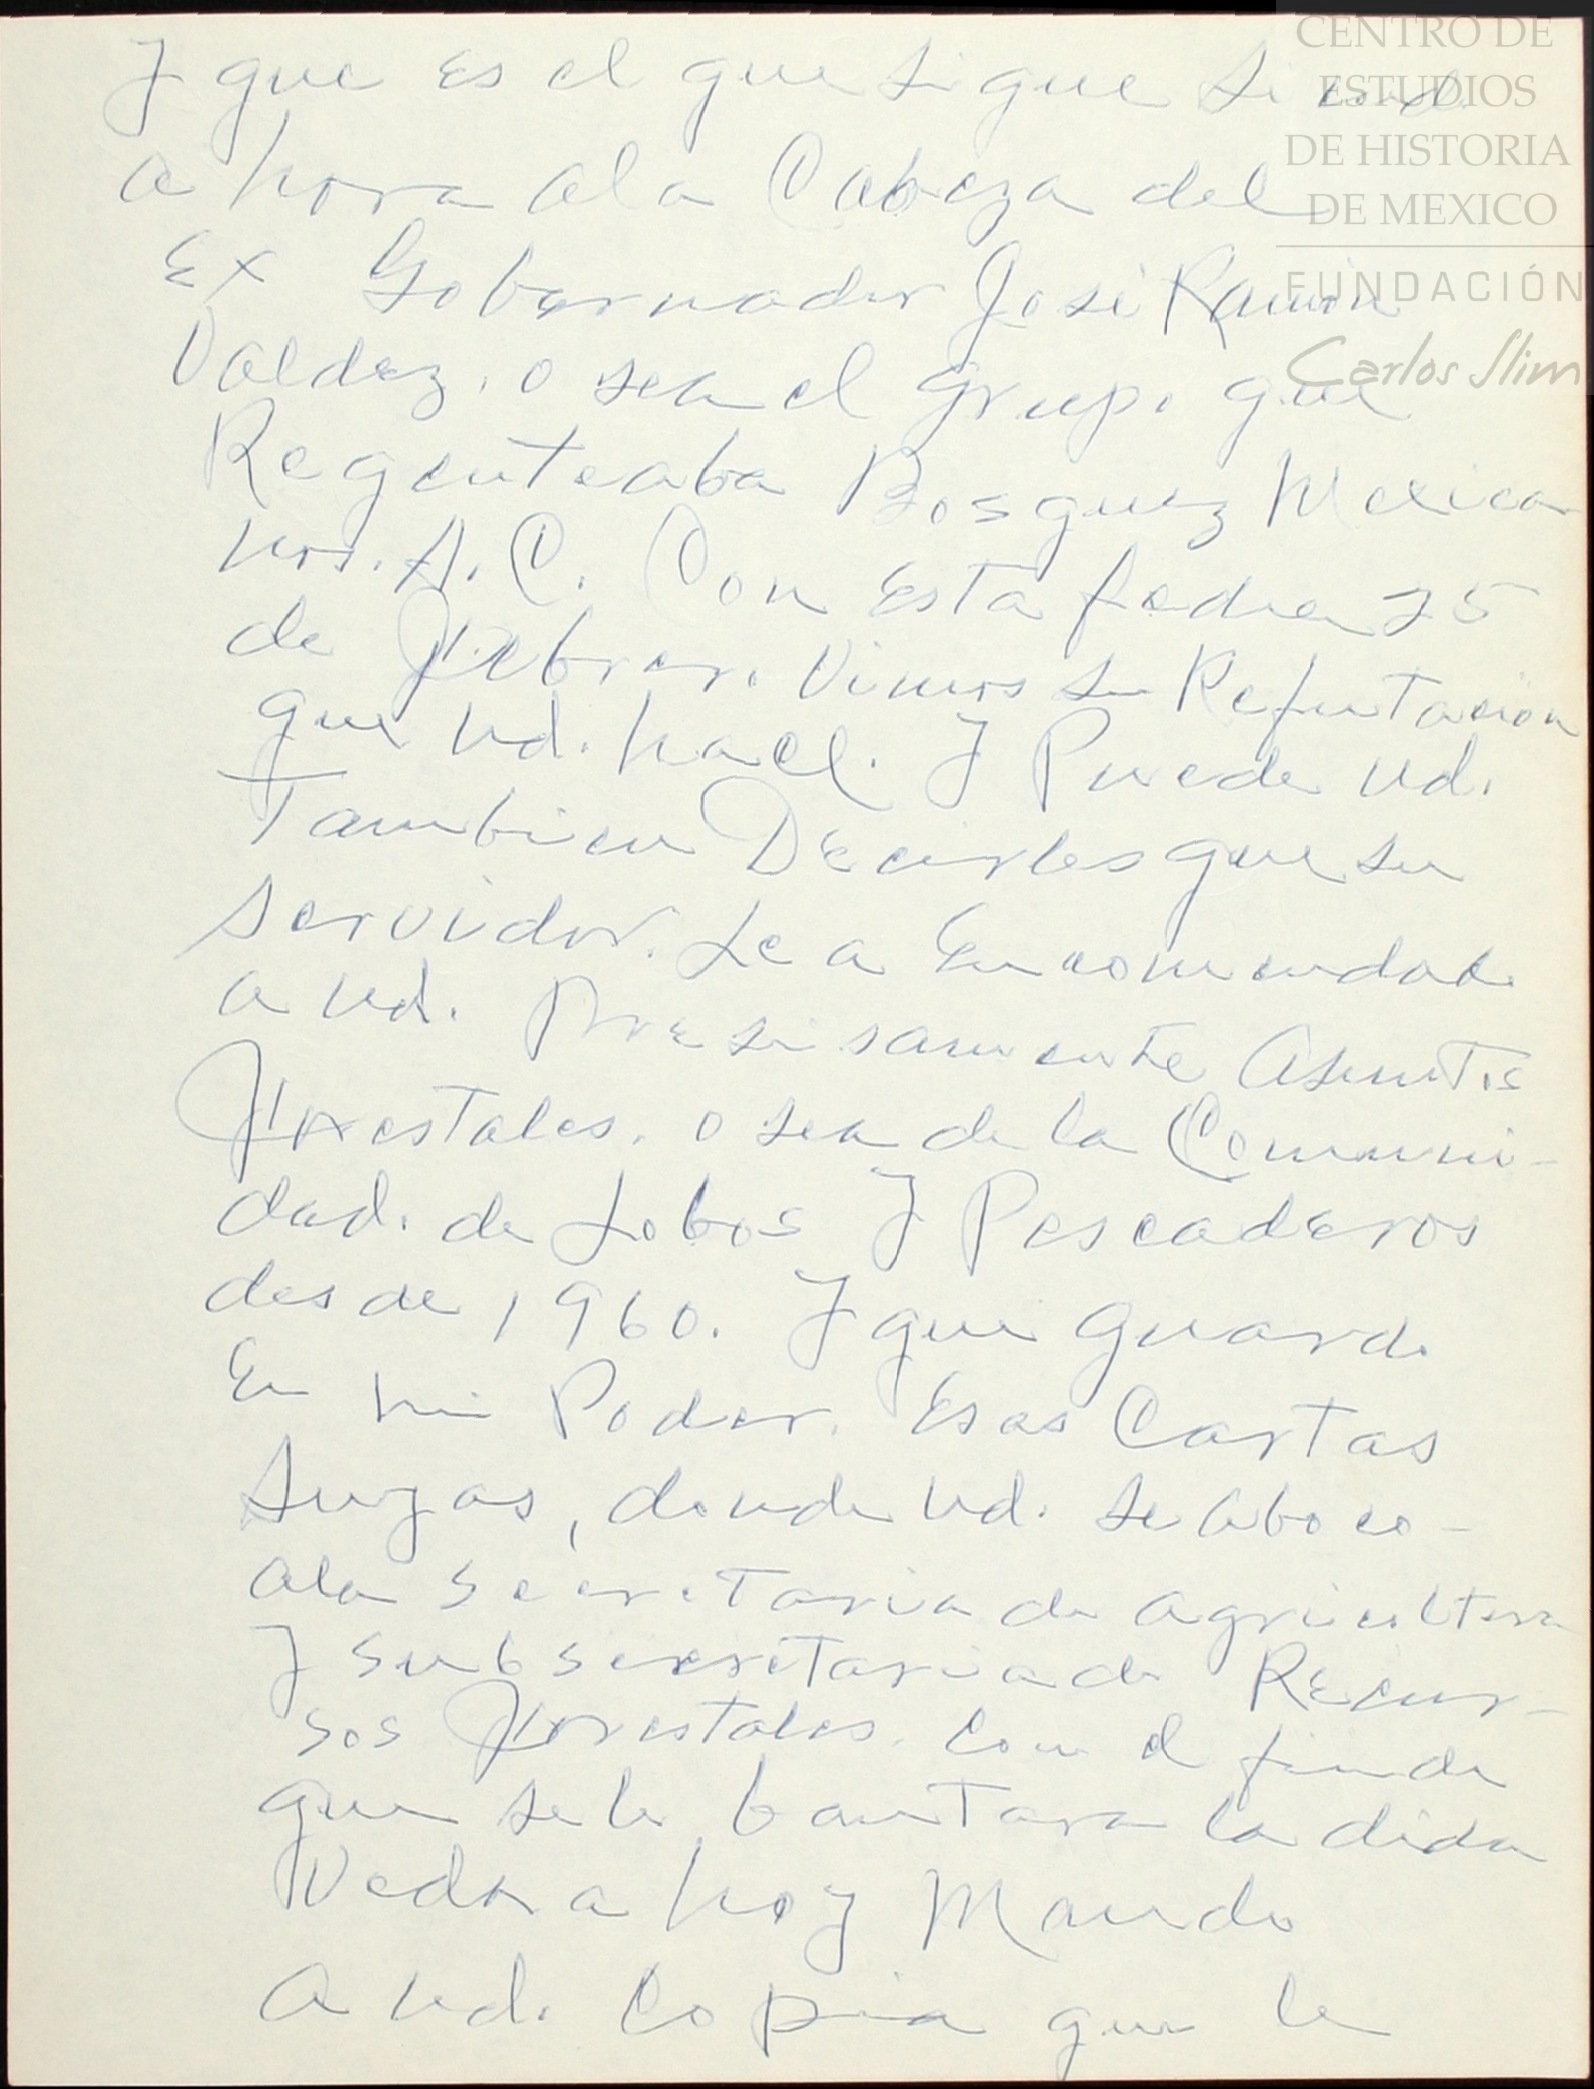 CENTRO DE
ESTUDIOS
DE HISTORIA
DE MEXICO
FUNDACIÓN
Carlos Slim
Y que es el que sigue siend
a hora ala Cabeza del
Ex Gobernador José Ramon
Valdez. o sea el grupo que
Regenteaba Bosquez Mexica
nos. A. C. Con Esta fecha 25
de Febrero. Vimos su Refutacion
que Ud. hace. Y Puede Ud.
Tambien Decirles que su
servidor. Le a Encomendado
a Ud. Presisamente Asuntos
Forestales. o sea de la Comuni-
dad. de Lobos Y Pescaderos
desde 1960. Y que guardo
En mi Poder. Esas Cartas
Suyas, donde Ud. se aboco-
ala Secretaria de agricultura
Y subsecretaria de Recur-
sos Forestales. Con el fin de
que se le bantara la dida
Veda a hoy Mando
a Ud. Copia que le